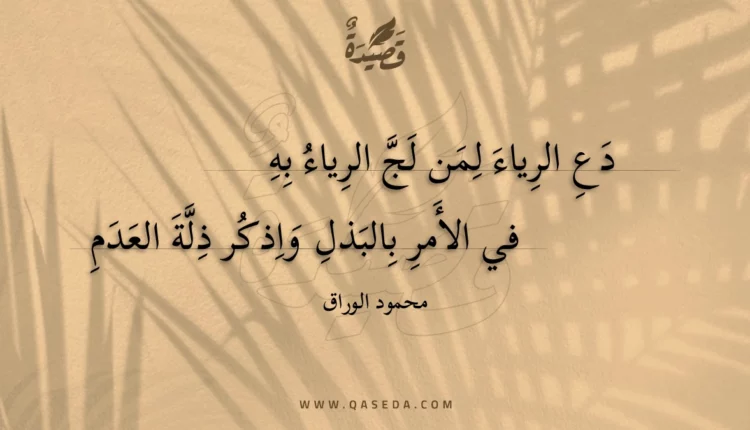 قَصِيْدَةٌ
دَعِ الرِياءَ لِمَن لَجَّ الرِياءُ بِهِ
في الأَمرِ بِالبَذلِ وَاِذكُر ذِلَّةَ العَدَمِ
محمود الوراق
WWW.QASEDA.COM